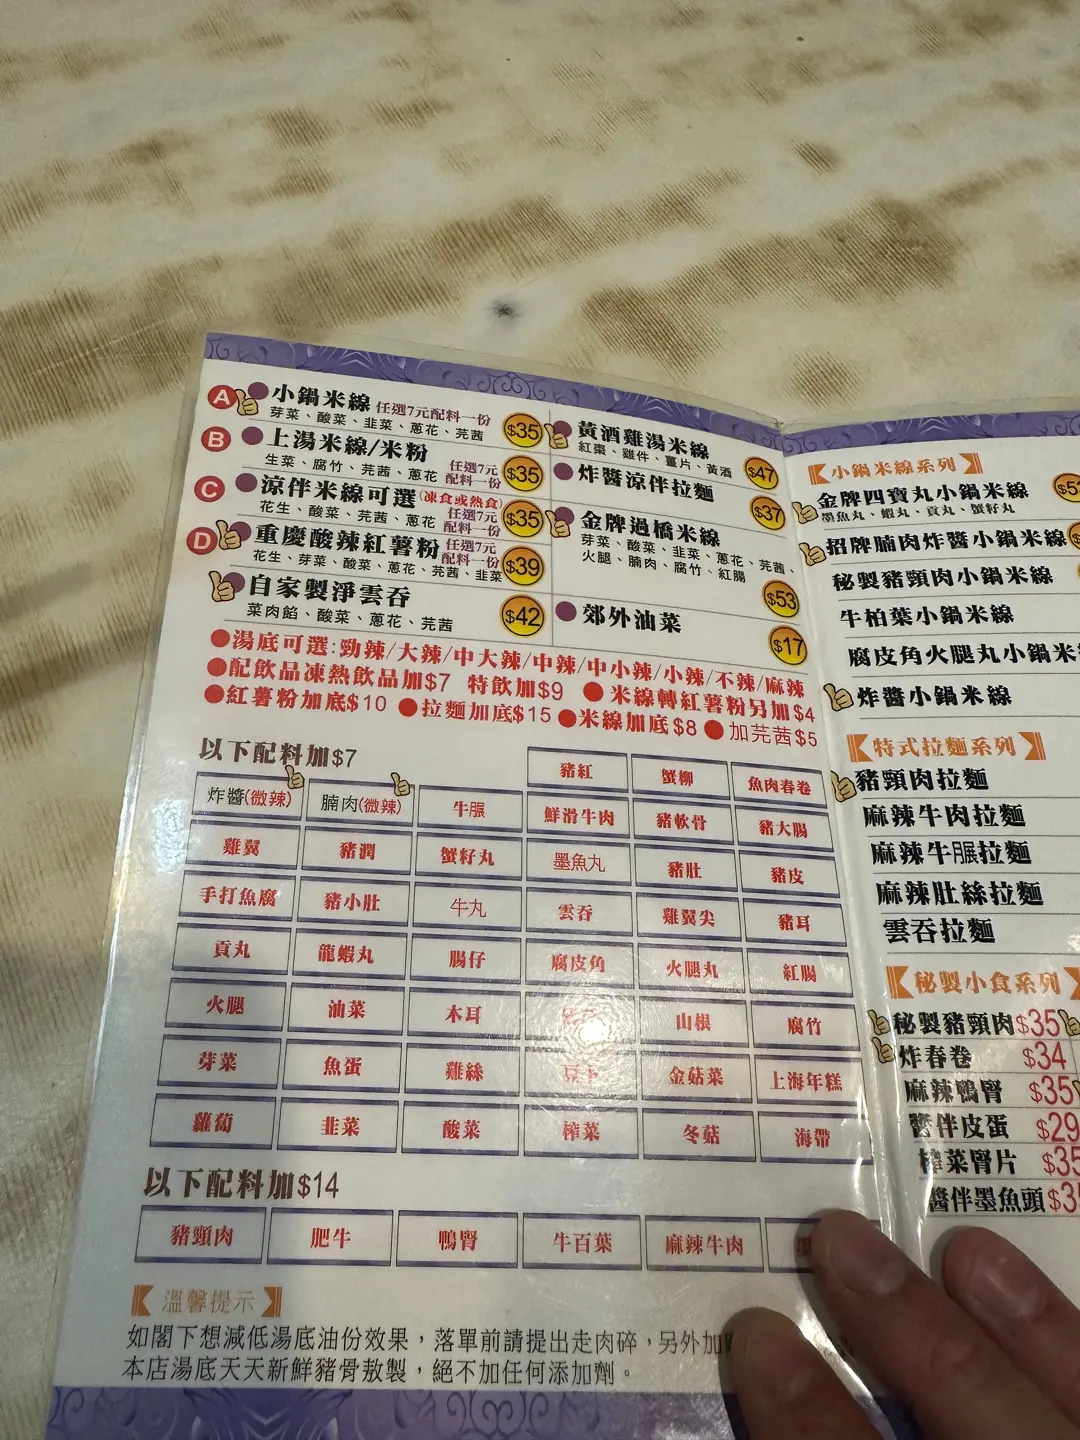 A 小鍋米線 任選7元配料一份 $35
芽菜、酸菜、韭菜、蔥花、芫茜
B 上湯米線/米粉 任選7元配料一份 $35
生菜、腐竹、芫茜、蔥花
C 涼伴米線可選(凍食或熱食) 任選7元配料一份 $35
花生、酸菜、芫茜、蔥花
D 重慶酸辣紅薯粉 任選7元配料一份 $39
花生、芽菜、酸菜、蔥花、芫茜、韭菜
自家製淨雲吞 $42
菜肉餡、酸菜、蔥花、芫茜
黃酒雞湯米線 $47
紅棗、雞件、薑片、黃酒
炸醬涼伴拉麵 $37
金牌過橋米線 $53
芽菜、酸菜、韭菜、蔥花、芫茜、
火腿、腩肉、腐竹、紅腸
郊外油菜 $17
●湯底可選:勁辣/大辣/中大辣/中辣/中小辣/小辣/不辣/麻辣
●配飲品凍熱飲品加$7 特飲加$9 ●米線轉紅薯粉另加$4
●紅薯粉加底$10 ●拉麵加底$15 ●米線加底$8 ●加芫茜$5
以下配料加$7
豬紅 蟹柳 魚肉春卷
炸醬(微辣) 腩肉(微辣) 牛脤 鮮滑牛肉 豬軟骨 豬大腸
雞翼 豬潤 蟹籽丸 墨魚丸 豬肚 豬皮
手打魚腐 豬小肚 牛丸 雲吞 雞翼尖 豬耳
貢丸 龍蝦丸 腸仔 腐皮角 火腿丸 紅腸
火腿 油菜 木耳 山根 腐竹
芽菜 魚蛋 雞絲 豆卜 金菇菜 上海年糕
蘿蔔 韭菜 酸菜 榨菜 冬菇 海帶
以下配料加$14
豬頸肉 肥牛 鴨腎 牛百葉 麻辣牛肉
溫馨提示
如閣下想減低湯底油份效果，落單前請提出走肉碎，另外加
本店湯底天天新鮮豬骨敖製，絕不加任何添加劑。
小鍋米線系列
金牌四寶丸小鍋米線
墨魚丸、蝦丸、貢丸、蟹籽丸
招牌腩肉炸醬小鍋米線
秘製豬頸肉小鍋米線
牛柏葉小鍋米線
腐皮角火腿丸小鍋米
炸醬小鍋米線
特式拉麵系列
豬頸肉拉麵
麻辣牛肉拉麵
麻辣牛脤拉麵
麻辣肚絲拉麵
雲吞拉麵
秘製小食系列
秘製豬頸肉 $35
炸春卷 $34
麻辣鴨腎 $35
醬伴皮蛋 $29
榨菜腎片 $35
醬伴墨魚頭